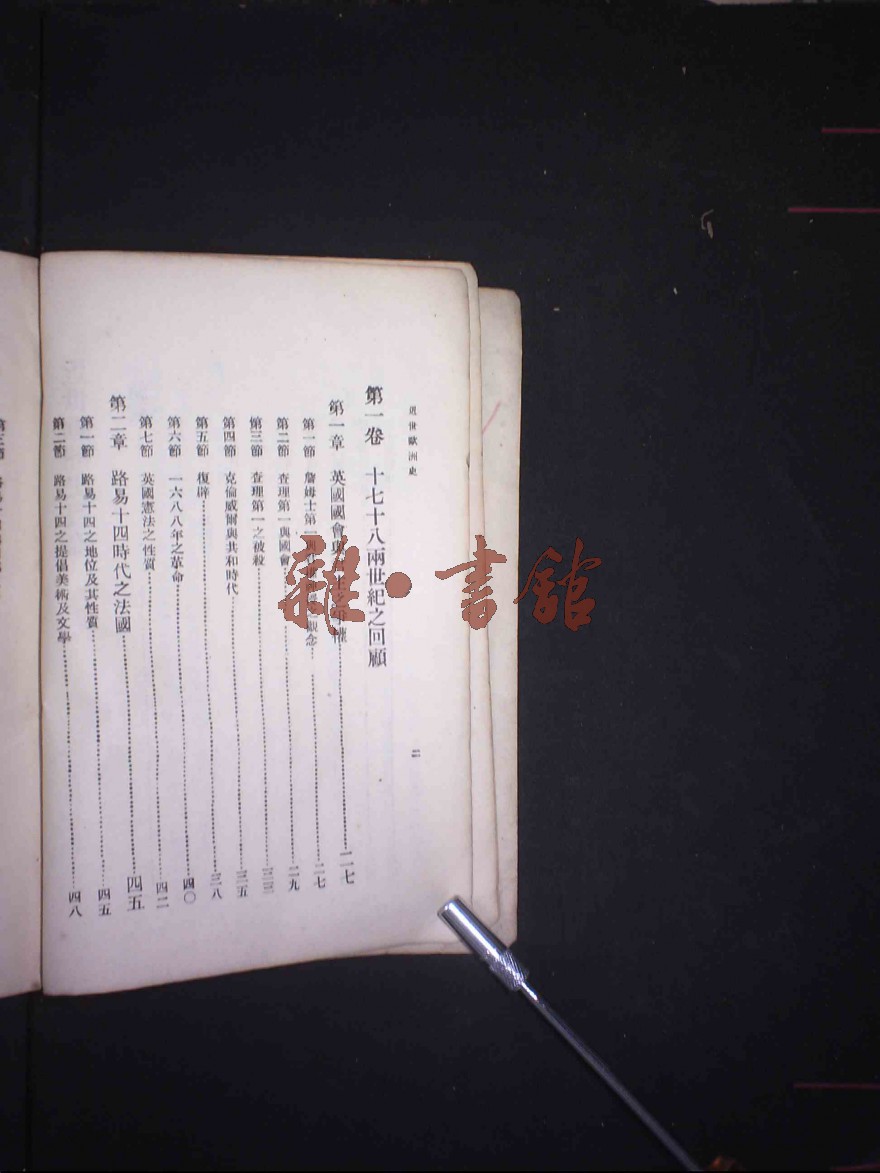 近世歐洲史
二
第一卷 十七十八兩世紀之回顧
第一章 英國國會與 二七
第一節 詹姆士第一與 觀念 二七
第二節 查理第一與國會 二九
第三節 查理第一之被殺 三三
第四節 克倫威爾與共和時代 三五
第五節 復辟 三八
第六節 一六八八年之革命 四〇
第七節 英國憲法之性質 四二
第二章 路易十四時代之法國 四五
第一節 路易十四之地位及其性質 四五
第二節 路易十四之提倡美術及文學 四八
雜·書館